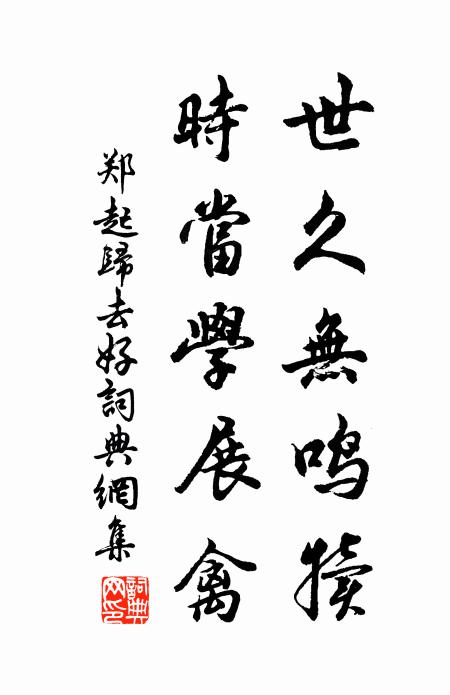 世久無鸣犊
時當學展禽
郑起歸去好詞典網集
詞典網印